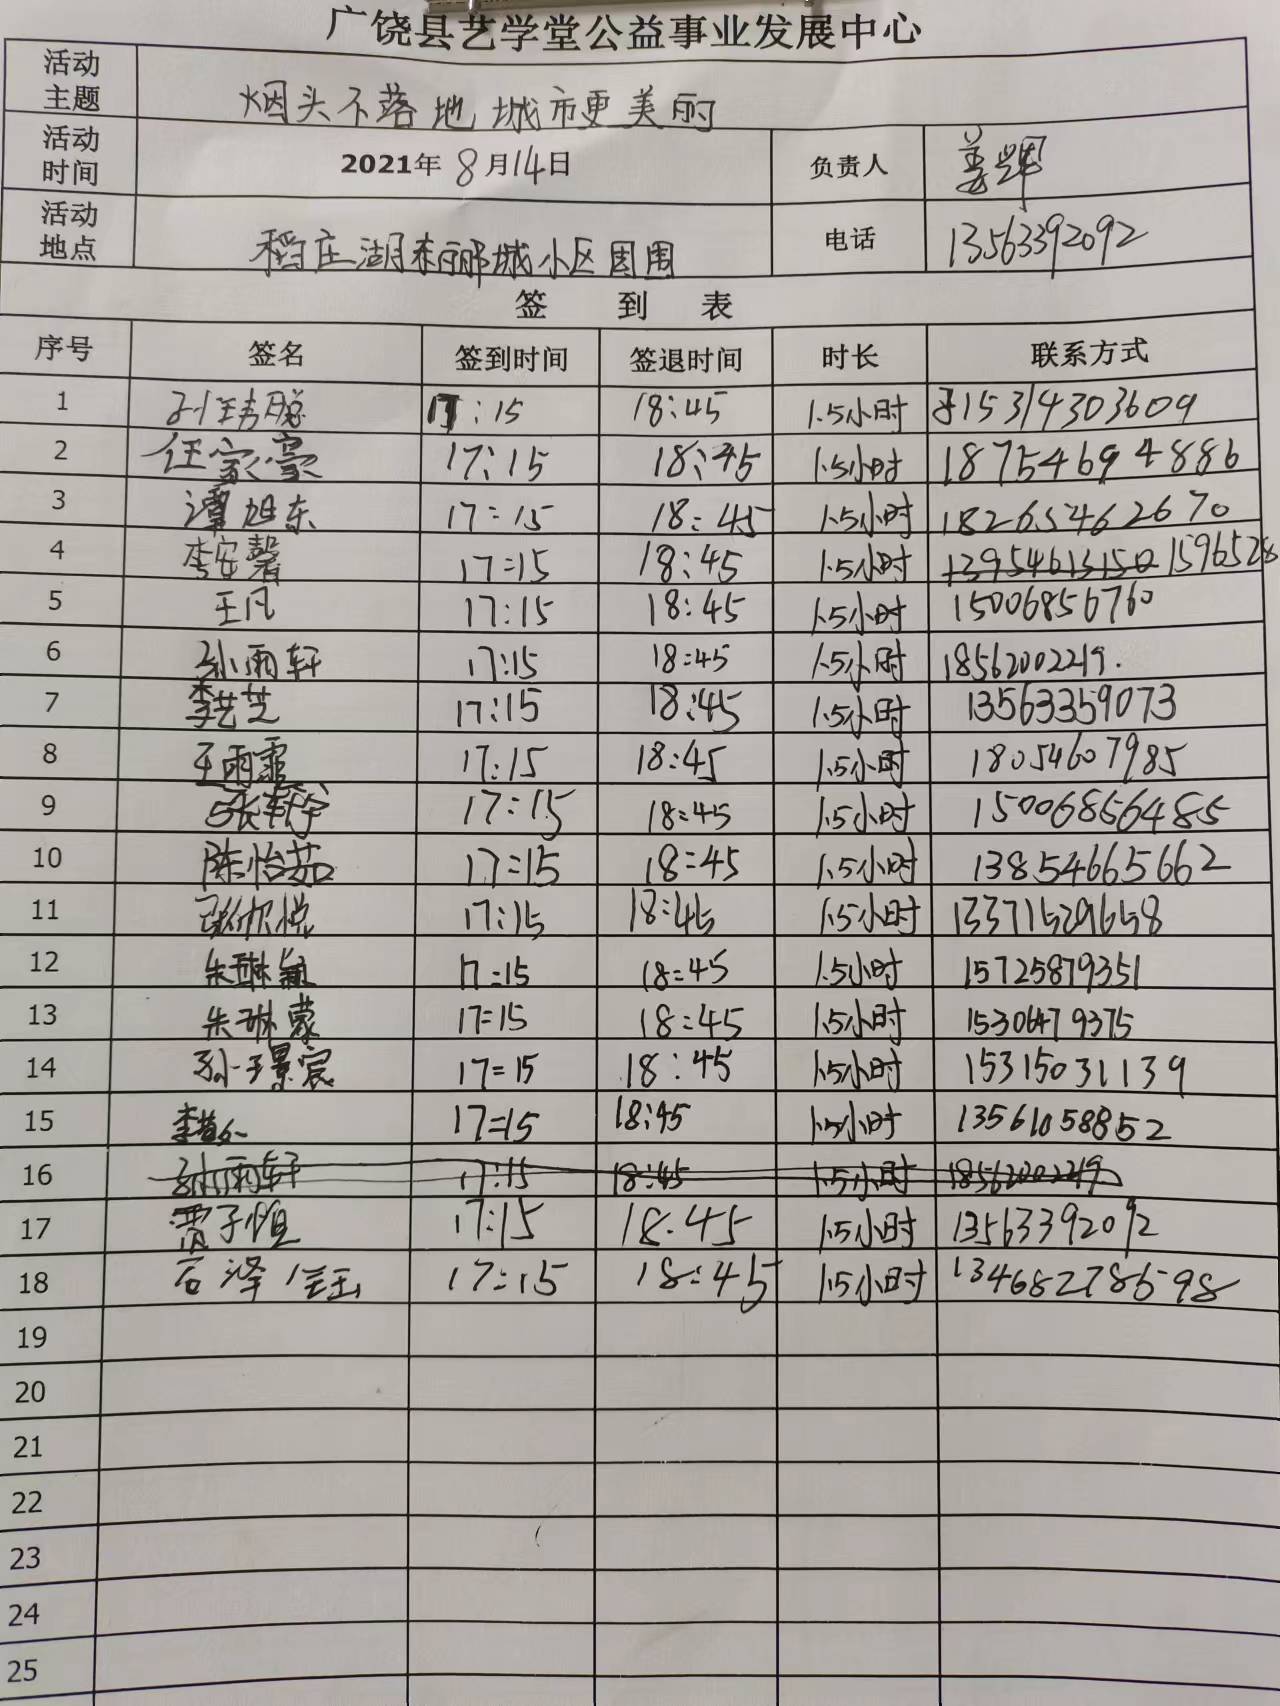 广饶县艺学堂公益事业发展中心
活动主题 烟头不落地 城市更美丽
活动时间 2021年8月14日 负责人 姜辉
活动地点 稻庄湖南丽都城小区周围 电话 13563392092
签 到 表
序号 签名 签到时间 签退时间 时长 联系方式
1 17:15 18:45 1.5小时 15314303609
2 任家豪 17:15 18:45 1.5小时 18754694886
3 谭旭东 17:15 18:45 1.5小时 18265462670
4 李安馨 17:15 18:45 1.5小时 13954613150 1596528
5 王凡 17:15 18:45 1.5小时 15006856760
6 孙雨轩 17:15 18:45 1.5小时 18562002219.
7 李艺芝 17:15 18:45 1.5小时 13563359073
8 王雨霏 17:15 18:45 1.5小时 18054607985
9 17:15 18:45 1.5小时 15006856485
10 陈怡茹 17:15 18:45 1.5小时 13854665662
11 17:15 18:45 1.5小时 13371529658
12 朱琳颖 17:15 18:45 1.5小时 15725879351
13 朱琳蒙 17:15 18:45 1.5小时 15306479375
14 孙璟宸 17:15 18:45 1.5小时 15315031139
15 17:15 18:45 1.5小时 13561058852
16 孙雨轩 17:15 18:45 1.5小时 18562002219
17 贾子恒 17:15 18:45 1.5小时 13563392092
18 石泽钰 17:15 18:45 1.5小时 13468278698
19
20
21
22
23
24
25